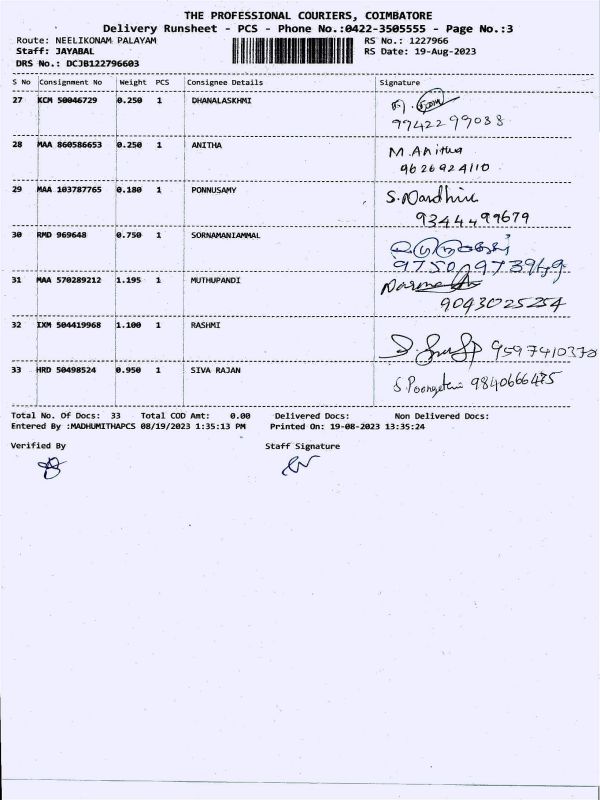 THE PROFESSIONAL COURIERS, COIMBATORE
Delivery Runsheet - PCS - Phone No.:0422-3505555 - Page No.:3
Route: NEELIKONAM PALAYAM RS No.: 1227966
Staff: JAYABAL RS Date: 19-Aug-2023
DRS No.: DCJB122796603
S No Consignment No Weight PCS Consignee Details Signature
27 KCM 50046729 0.250 1 DHANALASKHMI
99422 99088
28 MAA 860586653 0.250 1 ANITHA M.Anitha
9626924110
29 MAA 103787765 0.180 1 PONNUSAMY S.Nandhini
9344499679
30 RMD 969648 0.750 1 SORNAMANIAMMAL
9750973969
31 MAA 570289212 1.195 1 MUTHUPANDI
9043025254
32 IXM 504419968 1.100 1 RASHMI
9597410378
33 HRD 50498524 0.950 1 SIVA RAJAN 9840666475
Total No. Of Docs: 33 Total COD Amt: 0.00 Delivered Docs: Non Delivered Docs:
Entered By :MADHUMITHAPCS 08/19/2023 1:35:13 PM Printed On: 19-08-2023 13:35:24
Verified By Staff Signature